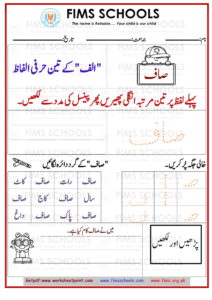 FIMS SCHOOLS
The name is Reliable... Your child is our child
نام: جماعت: تاریخ:
"الف" کے تین حرفی الفاظ
صاف
پہلے لفظ پر تین مرتبہ انگلی پھیریں پھر پینسل کی مدد سے لکھیں۔
صاف
خالی جگہ پُر کریں۔
"صاف" کے گرد دائرہ لگائیں
صاف رات صاف کاٹ
سال صاف کاج صاف
صاف پاک صاف داغ
میں نے صاف کام کیا ہے۔
پڑھیں اور لکھیں
Get pdf: www.worksheetpoint.com www.fimsschools.com www.fims.org.pk